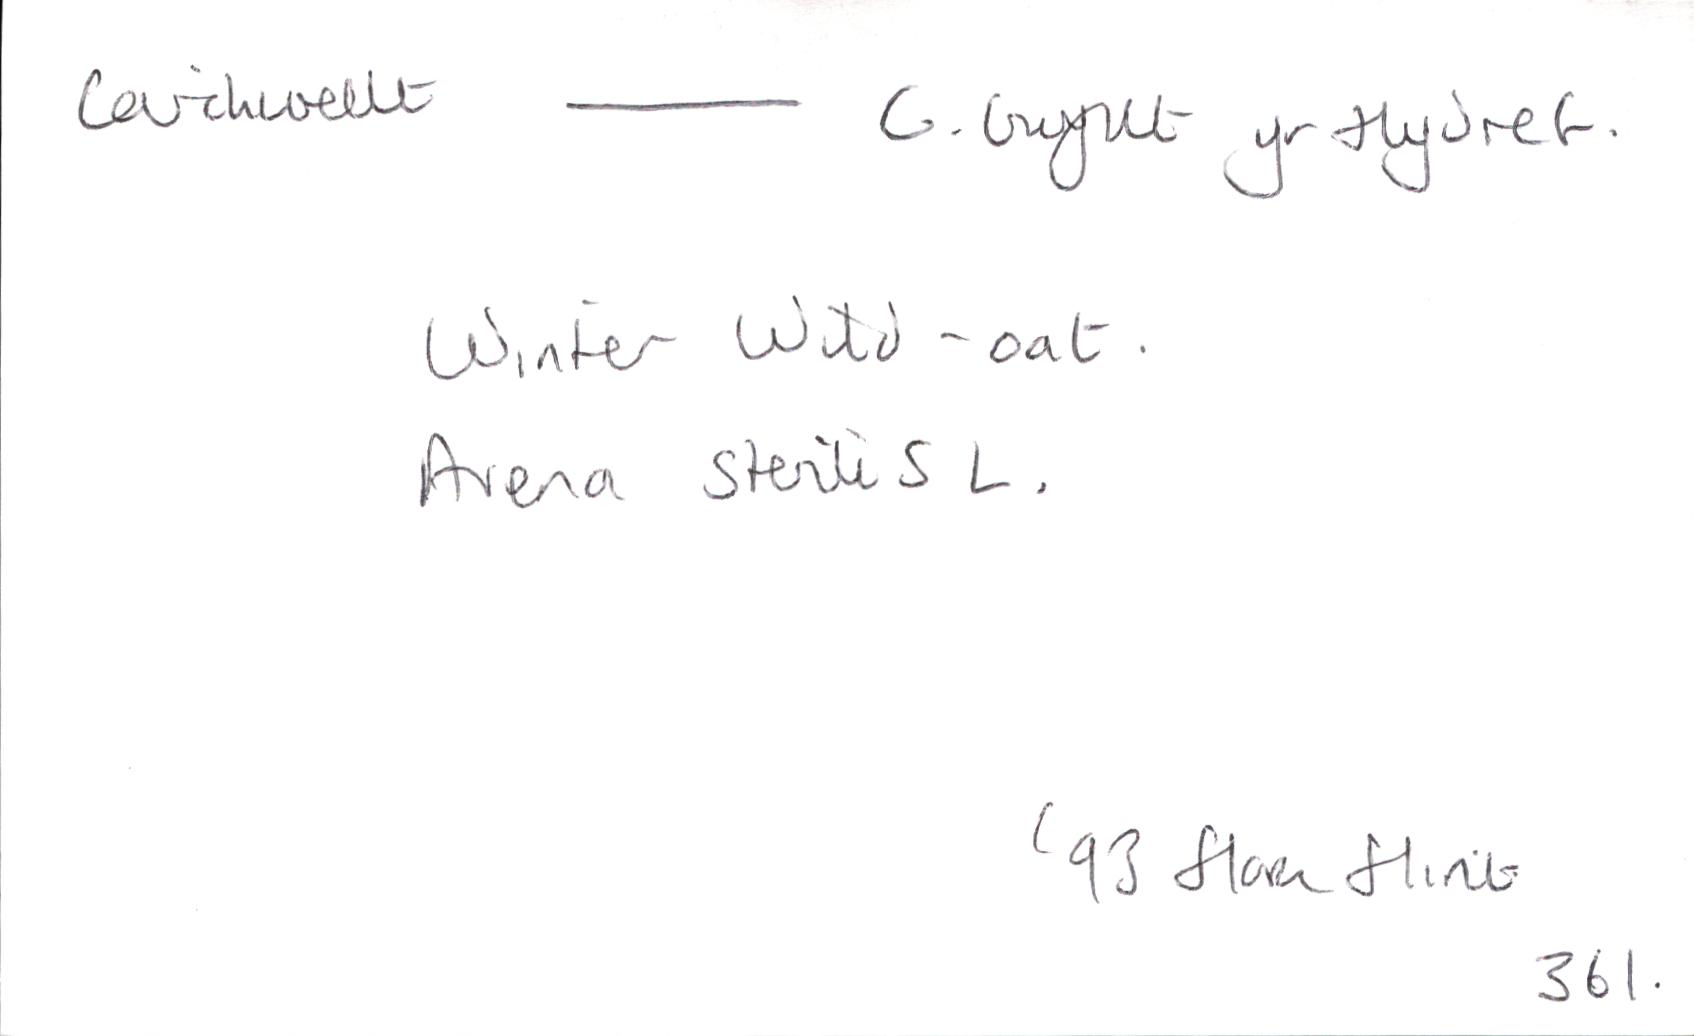 Ceirchwellt — C. Gwyllt yr Hydref.
Winter Wild-oat.
Avena sterilis L.
'93 Flora Flint
361.